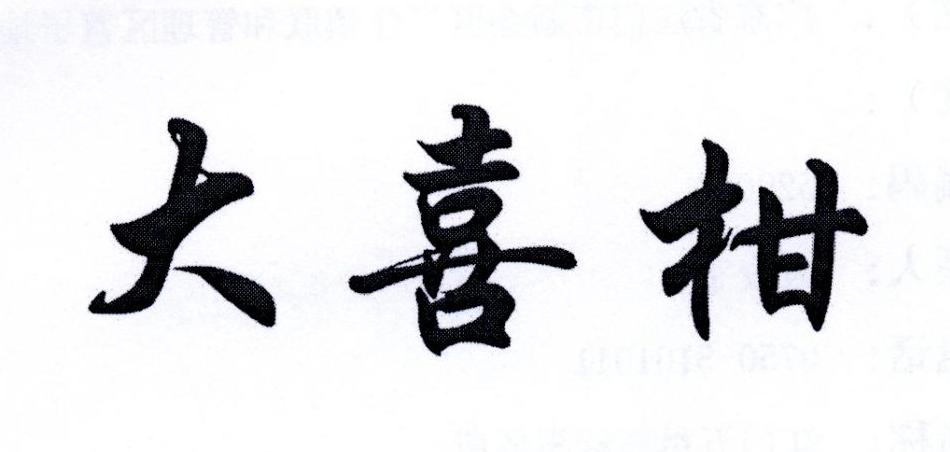 大喜柑